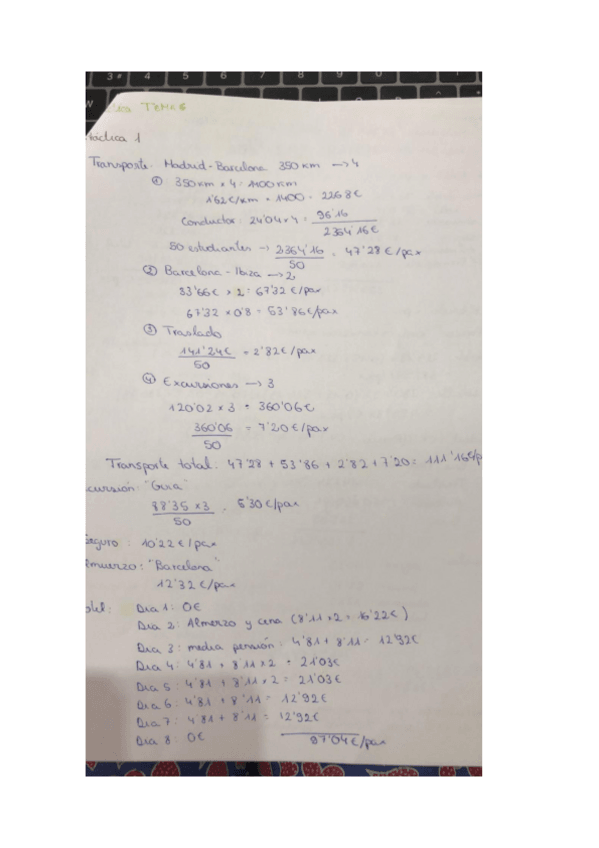 TEMA 6
Práctica 1
Transporte: Madrid-Barcelona 350 km → 4
① 350 km x 4 = 1400 km
1'62 €/km x 1400 = 2268 €
Conductor: 24'04 x 4 = 96'16
2364'16 €
50 estudiantes → 2364'16 / 50 = 47'28 €/pax
② Barcelona - Ibiza → 2
33'66 € x 2 = 67'32 €/pax
67'32 x 0'8 = 53'86 €/pax
③ Traslado
141'24 € / 50 = 2'82 €/pax
④ Excursiones → 3
120'02 x 3 = 360'06 €
360'06 / 50 = 7'20 €/pax
Transporte total: 47'28 + 53'86 + 2'82 + 7'20 = 111'16 €/p
cursión: "Guía"
88'35 x 3 / 50 = 5'30 €/pax
Seguro: 10'22 €/pax
lmuerzo: "Barcelona"
12'32 €/pax
otel: Día 1: 0 €
Día 2: Almerzo y cena (8'11 x 2 = 16'22 €)
Día 3: media pensión: 4'81 + 8'11 = 12'92 €
Día 4: 4'81 + 8'11 x 2 = 21'03 €
Día 5: 4'81 + 8'11 x 2 = 21'03 €
Día 6: 4'81 + 8'11 = 12'92 €
Día 7: 4'81 + 8'11 = 12'92 €
Día 8: 0 €
97'04 €/pax